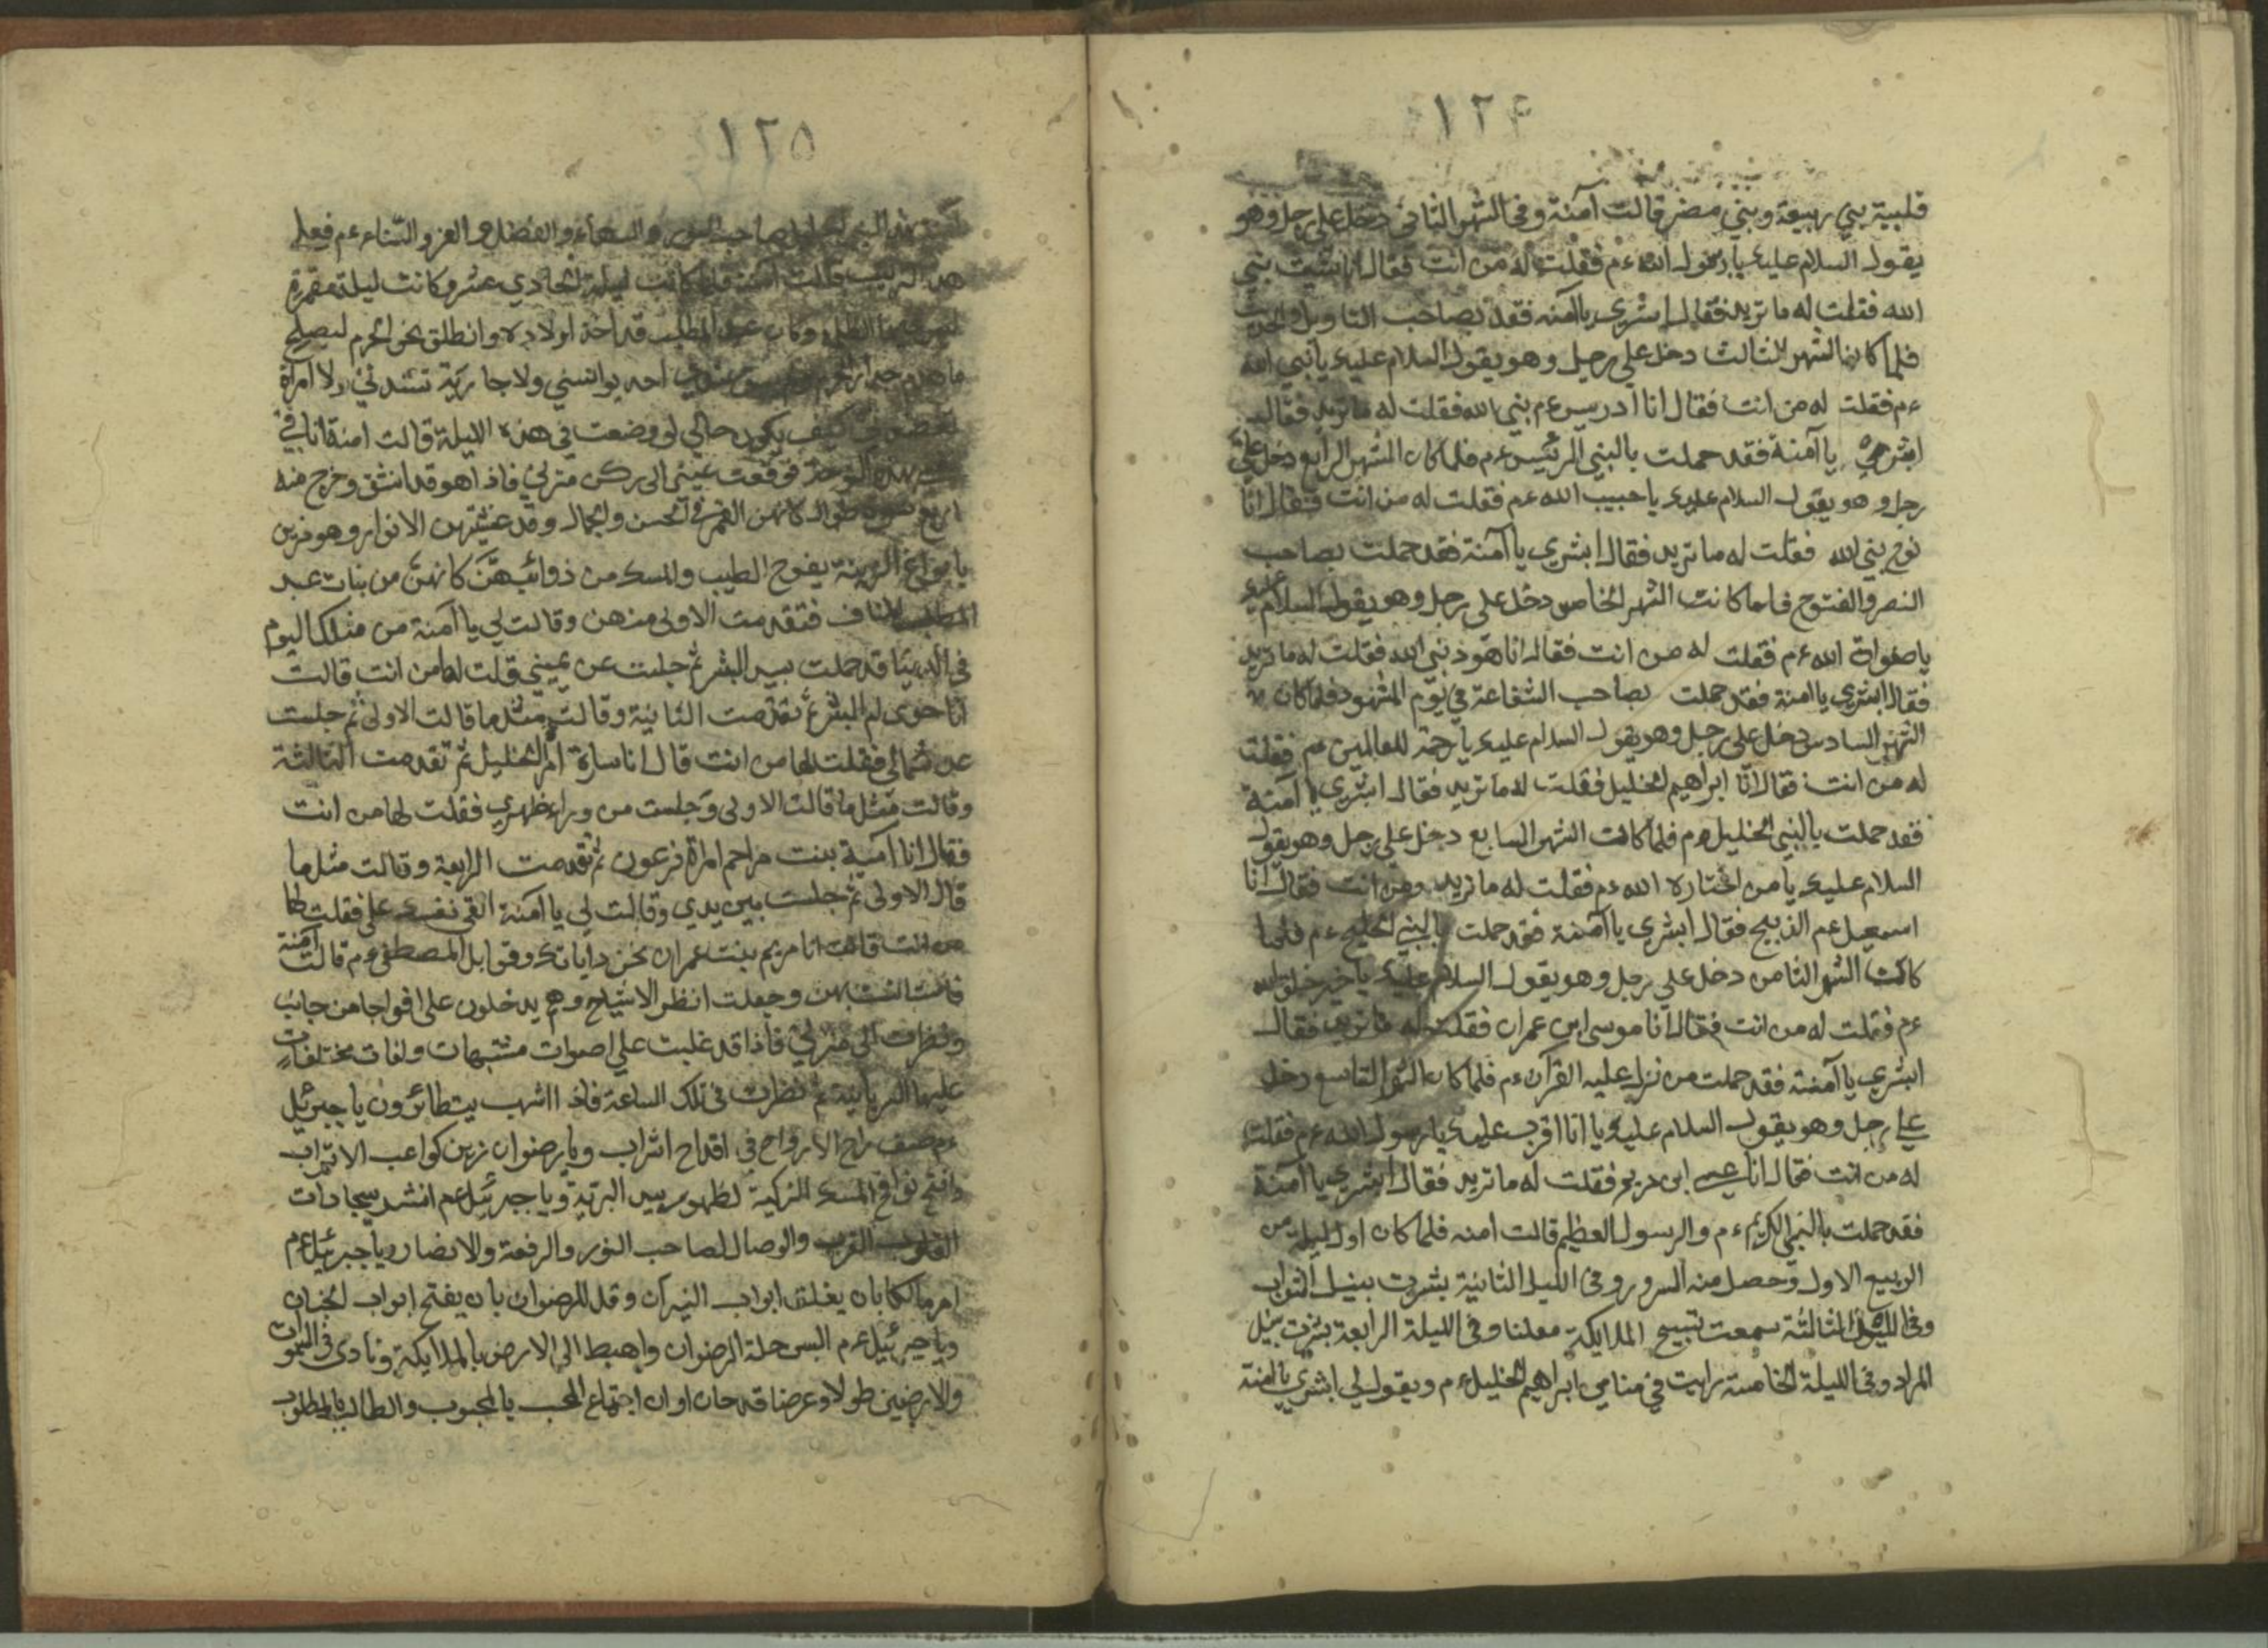 ١٢٤
قلبية بني ربيعة وبني مضر قالت آمنة وفى الشهر الثانى دخل علي رجل وهو
يقول السلام عليك يا رسول الله ءم فقلت له من انت فقال انا شيث نبي
الله فقلت له ما تريد فقال ابشري يا آمنه فقد بصاحب التاويل والحديث
فلما كان الشهر الثالث دخل علي رجل وهو يقول السلام عليك يا نبي الله
ءم فقلت له من انت فقال انا ادريس ءم نبي الله فقلت له ما تريد فقال
ابشري يا آمنة فقد حملت بالنبي الرئيس ءم فلما كان الشهر الرابع دخل علي
رجل وهو يقول السلام عليك يا حبيب الله ءم فقلت له من انت فقال انا
نوح نبي الله فقلت له ما تريد فقال ابشري يا آمنة فقد حملت بصاحب
النصر والفتوح فلما كانت الشهر الخامس دخل علي رجل وهو يقول السلام عليك
يا صفواة الله ءم فقلت له من انت فقال انا هوذ نبي الله فقلت له ما تريد
فقال ابشري يا امنة فقد حملت بصاحب الشفاعة في يوم المشهود فلما كان
الشهر السادس دخل علي رجل وهو يقول السلام عليك يا رحمة للعالمين ءم فقلت
له من انت فقال انا ابراهيم الخليل فقلت له ما تريد فقال ابشري يا آمنة
فقد حملت بالنبي الخليل ءم فلما كانت الشهر السابع دخل علي رجل وهو يقول
السلام عليك يا من اختاره الله ءم فقلت له ما تريد ومن انت فقال انا
اسمعيل ءم الذبيح فقال ابشري يا آمنة فقد حملت بالنبي ءم فلما
كانت الشهر الثامن دخل علي رجل وهو يقول السلام عليك يا خير خلق الله
ءم فقلت له من انت فقال انا موسى ابن عمران فقلت له ما تريد فقال
ابشري يا آمنة فقد حملت من نزل عليه القرآن ءم فلما كان الشهر التاسع دخل
علي رجل وهو يقول السلام عليك يا انا اقرب عليك يا رسول الله ءم فقلت
له من انت فقال انا عيسى ابن مريم فقلت له ما تريد فقال ابشري يا آمنة
فقد حملت بالنبي الكريم ءم والرسول العظيم قالت امنه فلما كان اول ليلة من
الربيع الاول وحصل منه السرور وفى الليل الثانية بشرت بنيل الثواب
وفى الليل الثالثة سمعت تسبيح الملايكة معلنا وفى الليلة الرابعة بشرت بنيل
المراد وفى الليلة الخامسة رايت في منامي ابراهيم الخليل ءم ويقول لي ابشري يا امنة
١٢٥
النبي صاحب النور والفضل والعز والثناء ءم فعلم
قالت آمنة فلما كانت ليلة الحادي عشر وكانت ليلة مقمرة
وكان عبد المطلب قد اخذ اولاده وانطلق نحو الحرم ليصلح
احد يوانسني ولا جارية تشدني ولا امرأة
كيف يكون حالي لو وضعت في هذه الليلة قالت امنة انا في
هذه الوحدة فوقعت عيني الى ركن منزلي فاذا هو قد انشق وخرج منه
اربع نسوة طوال كانهن القمر في الحسن والجمال وقد غشيتهن الانوار وهو مزين
بانواع الزينة يفوح الطيب والمسك من ذوائبهنّ كانهن من بنات عبد
المناف فتقدمت الاولى منهن وقالت لي يا آمنة من مثلك اليوم
في الدنيا قد حملت بسيد البشر ثم جلست عن يميني قلت لها من انت قالت
انا حوى ام البشر ثم تقدمت الثانية وقالت مثل ما قالت الاولى ثم جلست
عن شمالي فقلت لها من انت قال انا سارة ام الخليل ثم تقدمت الثالثة
وقالت مثل ما قالت الاولى وجلست من وراء ظهري فقلت لها من انت
فقال انا آسية بنت مزاحم امراة فرعون ثم تقدمت الرابعة وقالت مثل ما
قال الاولى ثم جلست بين يدي وقالت لي يا آمنة القى نفسك علي فقلت لها
من انت قالت انا مريم بنت عمران نحن داياتك وقوابل المصطفى ءم قالت آمنة
بهن وجعلت انظر الاشباح وهم يدخلون علي افواجا من جانب
ونظرت الى منزلي فاذا قد غلبت علي اصوات مشتبهات ولغات مختلفات
عليها السريانية ثم نظرت في تلك الساعة فاذا الشهب يتطائرون يا جبرئيل
ءم صف راح الارواح في اقداح الشراب ويا رضوان زين كواعب الاتراب
وافتح نوافج المسك الزكية لظهور سيد البرية ويا جبرئيل ءم انشر سجادات
القلوب القرب والوصال لصاحب النور والرفعة والاتصال ويا جبرئيل ءم
امر مالكا بان يغلق ابواب النيران وقل للرضوان بان يفتح ابواب الجنان
ويا جبرئيل ءم البس حلة الرضوان واهبط الى الارض بالملايكة ونادى في السموات
والارضين طولا وعرضا قد حان اوان اجتماع المحب بالمحبوب والطالب بالمطلوب